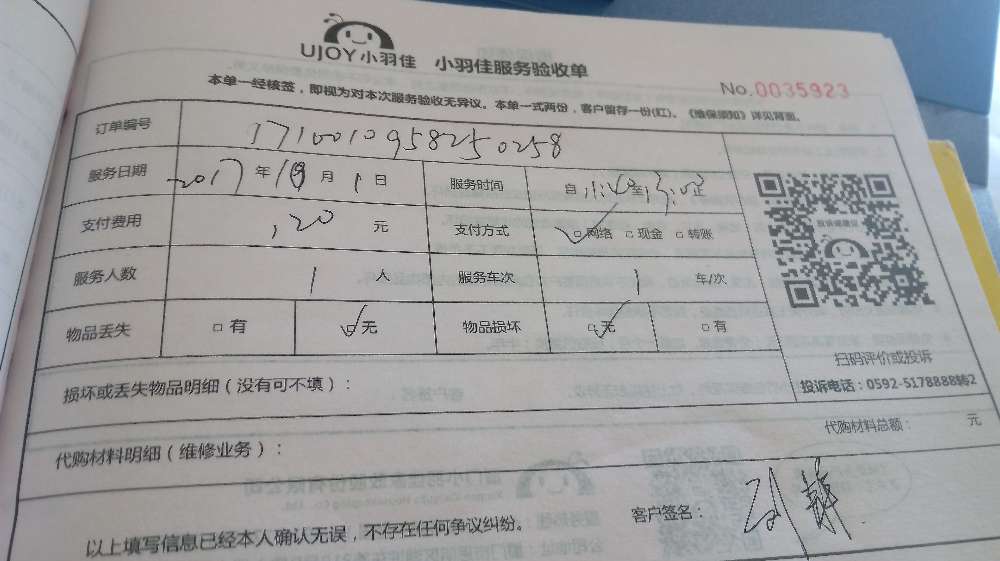 UJOY小羽佳 小羽佳服务验收单
No.0035923
本单一经核签，即视为对本次服务验收无异议。本单一式两份，客户留存一份(红)。《维保须知》详见背面。
订单编号 1710010958250258
服务日期 2017年10月1日 服务时间 自 至
支付费用 120元 支付方式 网络 □现金 □转账
服务人数 1人 服务车次 1车/次
物品丢失 □有 ☑无 物品损坏 ☑无 □有
投诉或建议
扫码评价或投诉
投诉电话：0592-5178888转2
损坏或丢失物品明细（没有可不填）：
代购材料明细（维修业务）： 代购材料总额： 元
以上填写信息已经本人确认无误，不存在任何争议纠纷。 客户签名：